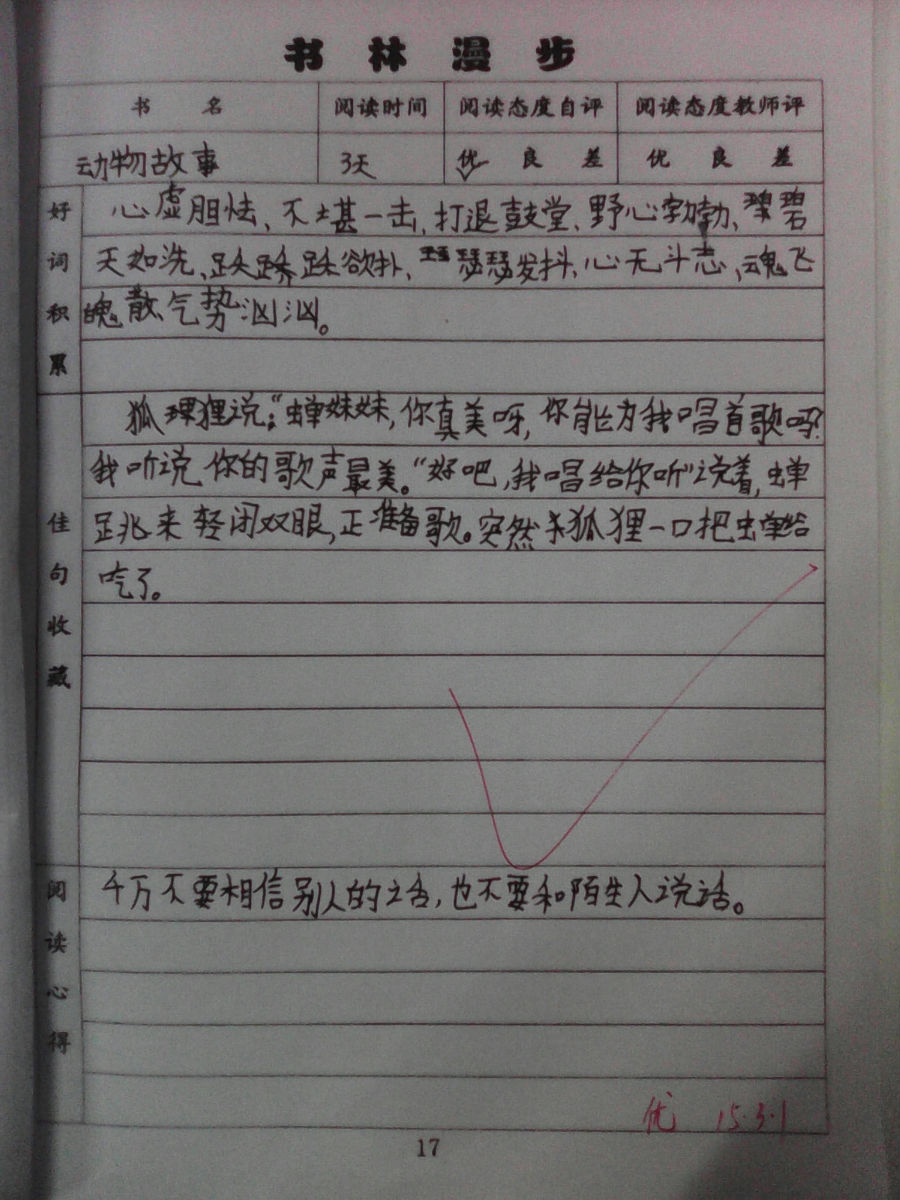 书林漫步
书名 阅读时间 阅读态度自评 阅读态度教师评
动物故事 3天 优 良 差 优 良 差
好词积累
心虚胆怯、不堪一击,打退鼓堂、野心勃勃、碧
天如洗、跃跃欲扑、瑟瑟发抖、心无斗志、魂飞
魄散气势汹汹。
佳句收藏
狐狸说:“蝉妹妹,你真美呀,你能为我唱首歌吗?
我听说你的歌声最美。“好吧,我唱给你听”说着,蝉
跳来轻闭双眼,正准备歌。突然狐狸一口把虫单给
吃了。
阅读心得
千万不要相信别人的话,也不要和陌生人说话。
优 15.3.1
17